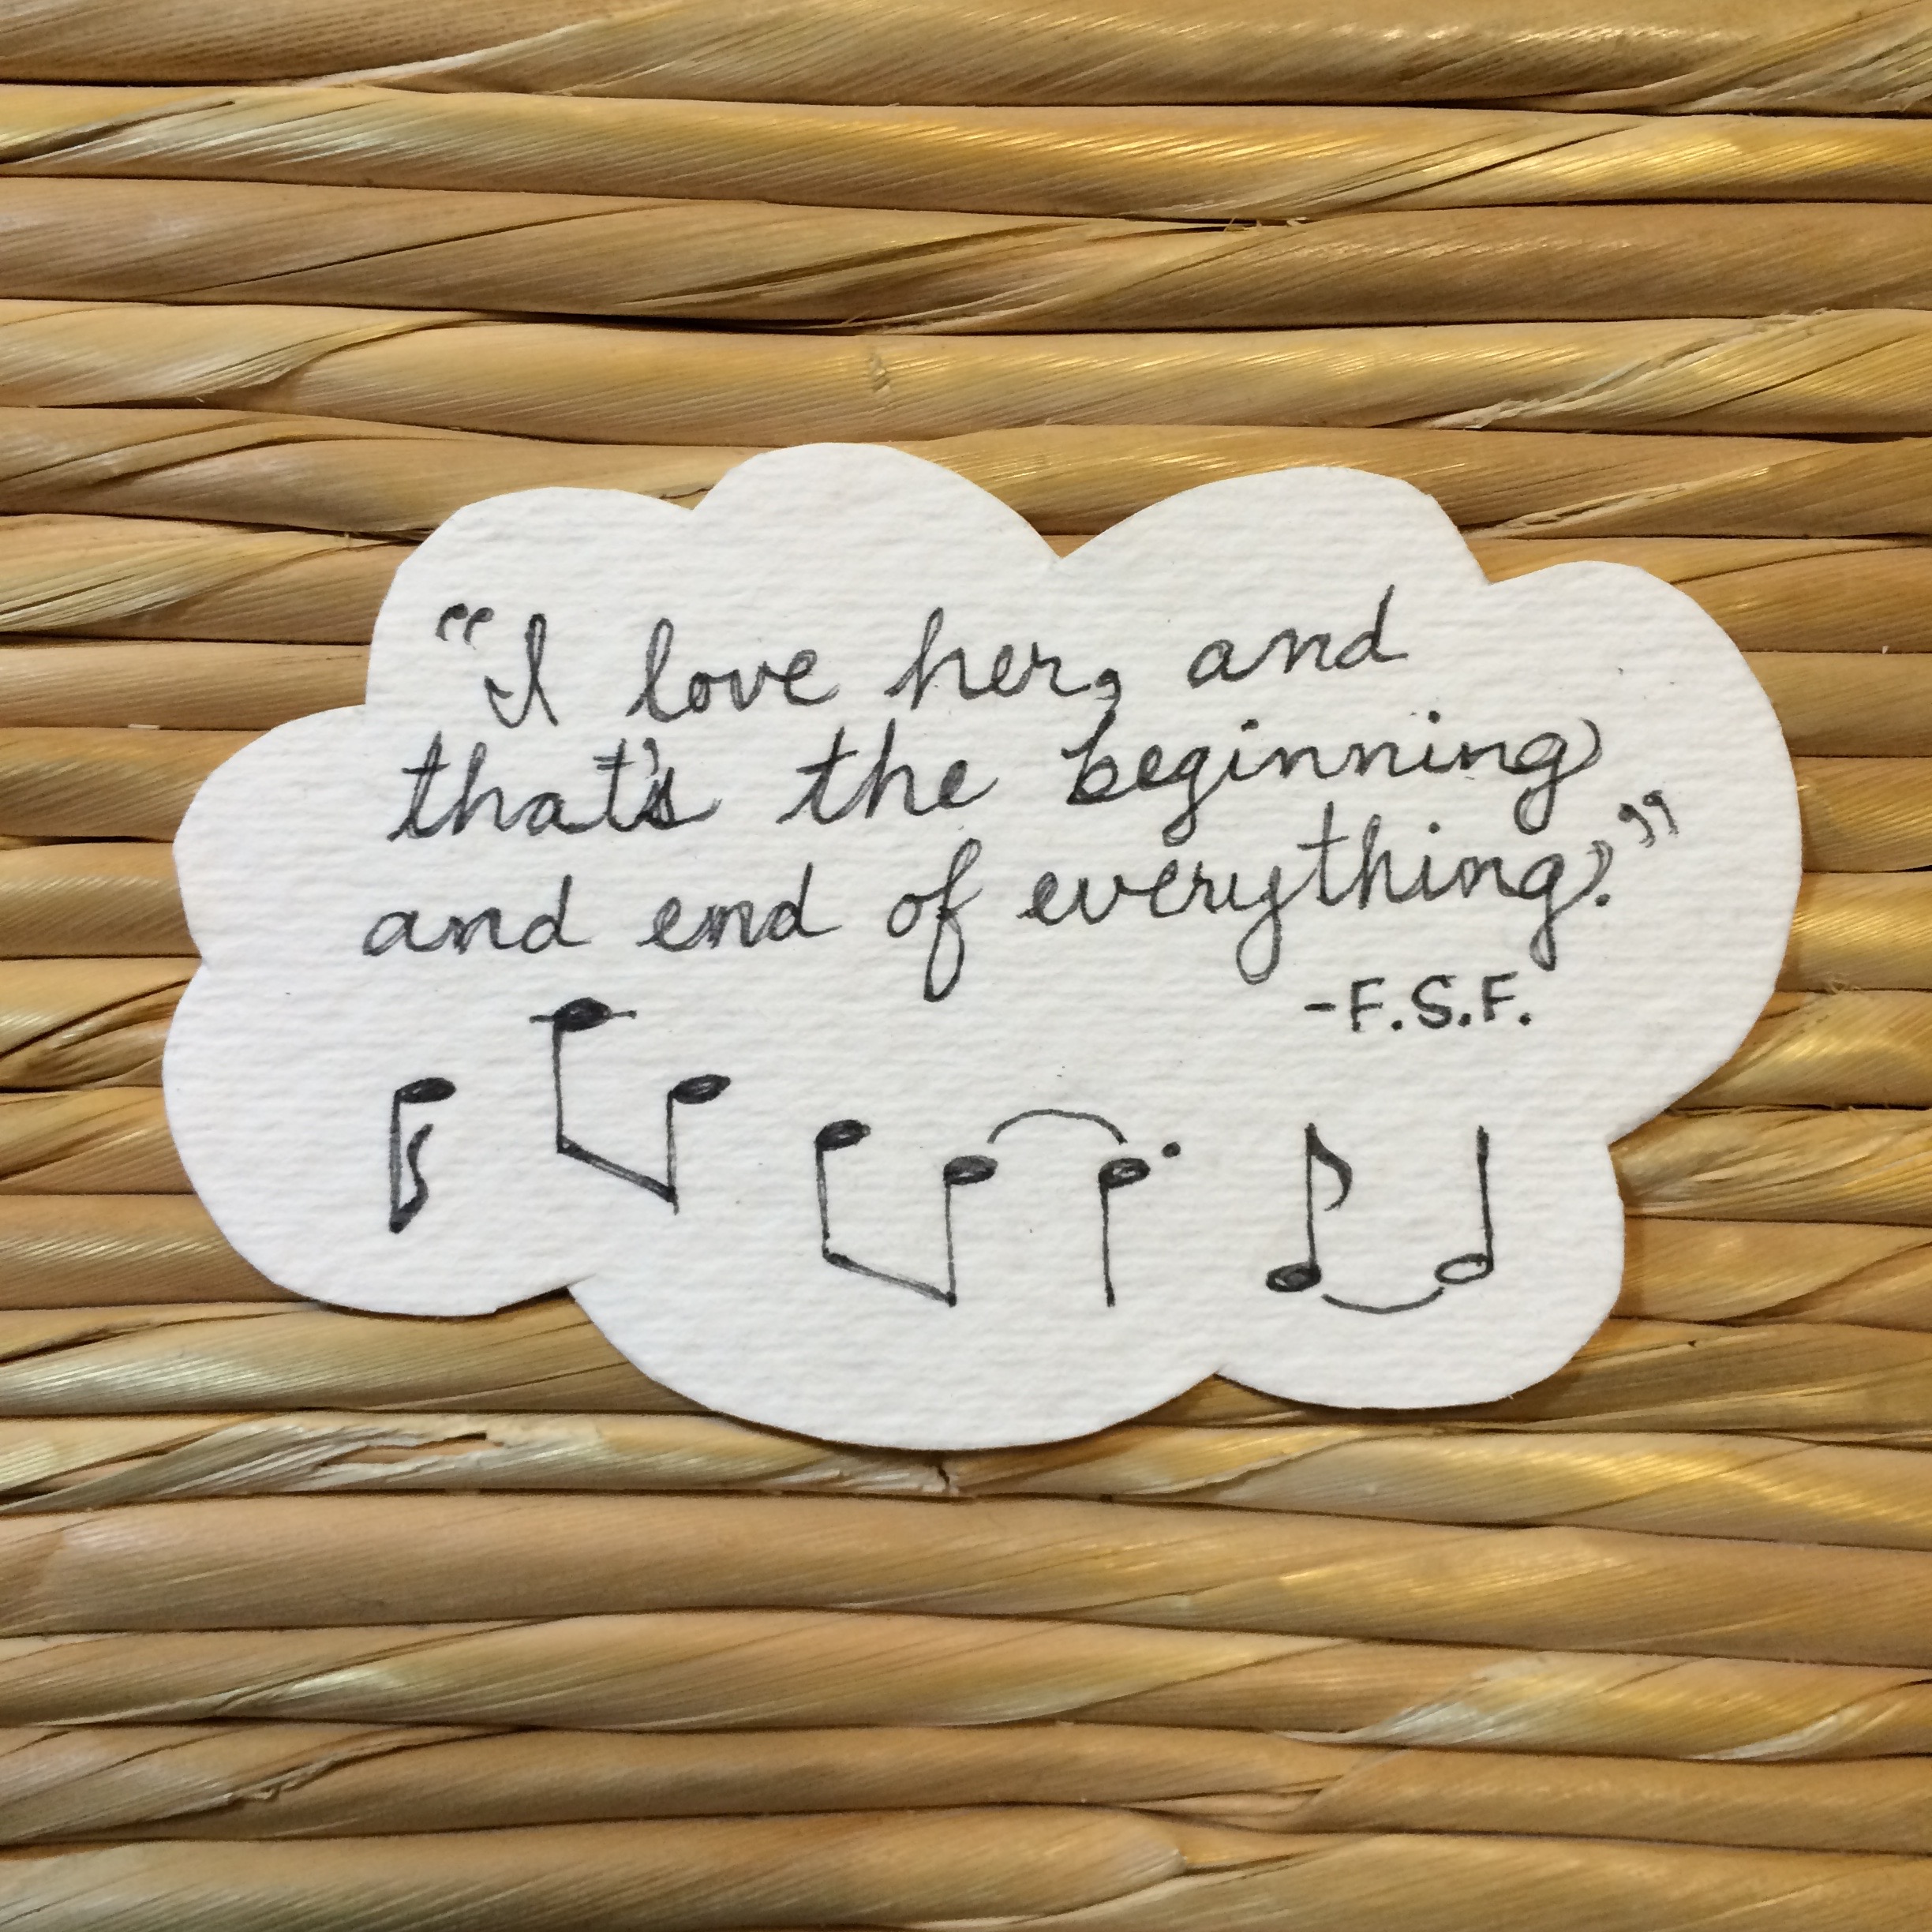 “I love her, and
that's the beginning
and end of everything.”
-F.S.F.